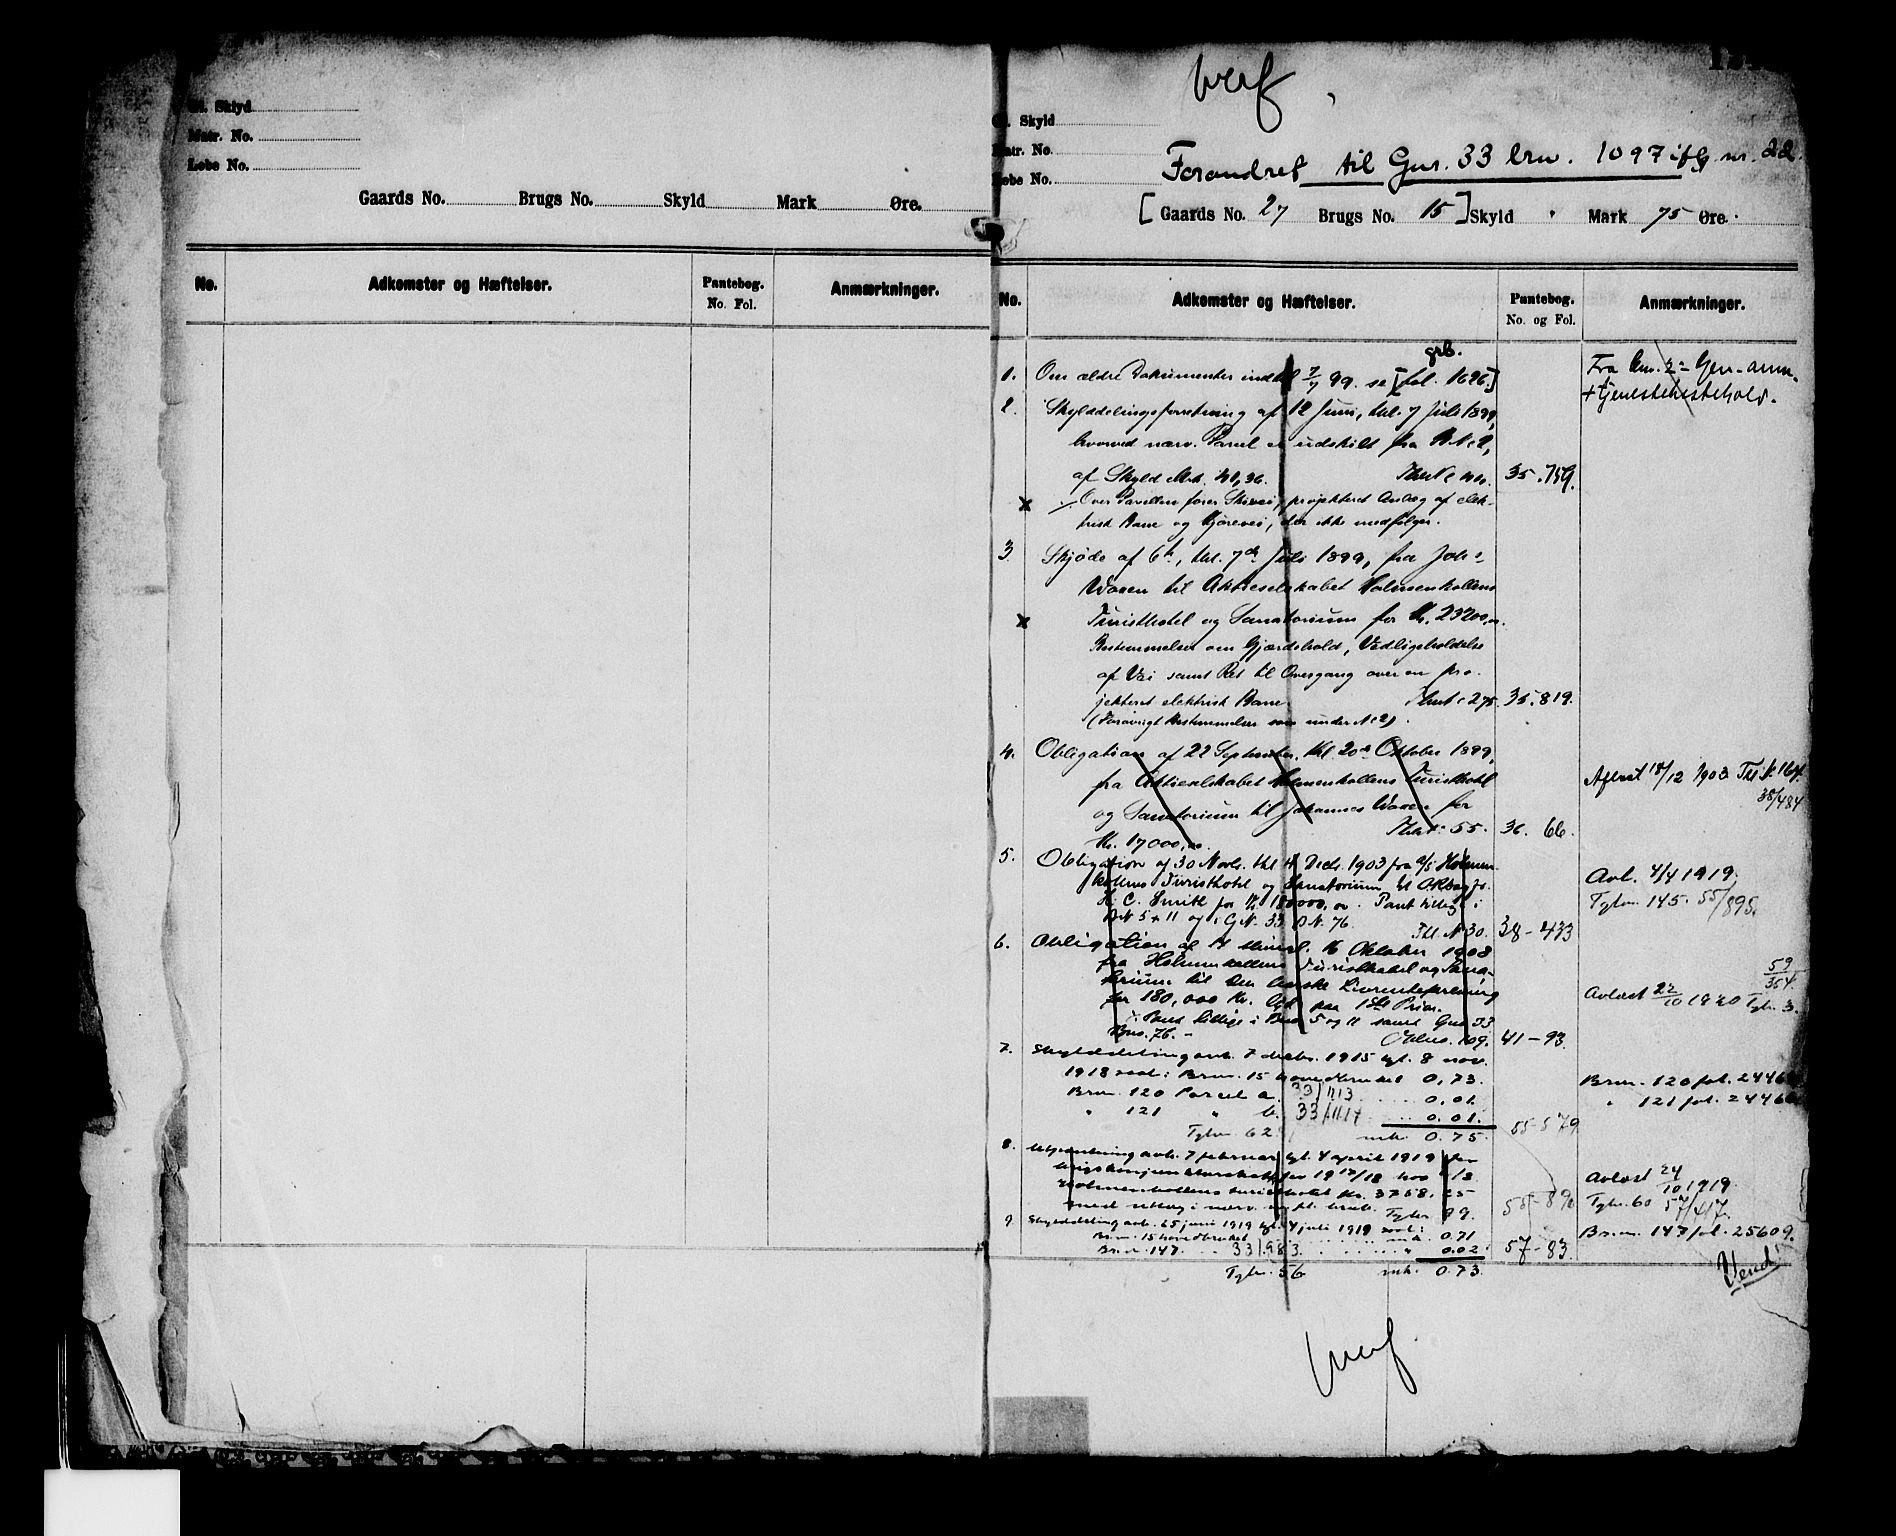 Gl. Skyld
Matr. No.
Løbe No.
Gaards No. Brugs No. Skyld Mark Øre.
No. Adkomster og Hæftelser. Pantebog. No. Fol. Anmærkninger.
Gl. Skyld
Matr. No.
Løbe No.
Forandret til Gnr. 33 brn. 1097 ifg nr. 22.
[Gaards No. 27 Brugs No. 15] Skyld " Mark 75 Øre.
No. Adkomster og Hæftelser. Pantebog. No. og Fol. Anmærkninger.
grb.
1. Om ældre Dokumenter indtil 7/7 99. se [fol. 1696.]
Fra brn. 2 = Gjen. anm.
+ tjenestehestehold.
2. Skylddelingsforretning af 12 Juni, thl. 7 Juli 1899,
hvorved nærv. Parcel er udskilt fra B.N. 2,
af Skyld Mrk. 41,36. 35. 759.
Over Parcellen fører Skivei, projekteret Anlæg af elek-
trisk Bane og Kjørevei, der ikke medfølger.
3. Skjøde af 6te, thl. 7de Juli 1899, fra Johs
Waaen til Aktieselskabet Holmenkollens
Turisthotel og Sanatorium for Kr. 23200,00.
Bestemmelser om Gjærdehold, Vedligeholdelse
af Vei samt Ret til Overgang over en pro-
jekteret elektrisk Bane. 275. 35. 819.
(Forøvrigt Bestemmelser som under No 2).
4. Obligation af 22 September, thl. 20de Oktober 1899,
fra Aktieselskabet Holmenkollens Turisthotel
og Sanatorium til Johannes Waaen for
Kr. 17000,00. 55. 36. 66.
Aflæst 18/12 1903 Thl. N. 164.
38/484
5. Obligation af 30 Novb. thl 4 Decb. 1903 fra A/S Holmen-
kollens Turisthotel og Sanatorium til
H. C. Smith for Kr 180000,00. Pant tillige i
B.N. 5 + 11 og i G.N. 33 B.N. 76. Thl. N 30. 38 - 433
Avl. 4/4 1919.
Tgbn. 145. 55/895.
6. Obligation af 14 thingl. 16 Oktober 1908
fra Holmenkollens Turisthotel og Sana-
torium til Den norske Livrenteforening
for 180,000 Kr. paa 1ste Prior.
Pant tillige i Bno 5 og 11 samt Gno 33
Bno. 76. - 109. 41 - 93.
59/354.
Avlæst 22/10 1920 Tgb. 3.
7. Skylddeling avh. 7 decbr. 1915 tgl. 8 nov.
1918 saal: Brn. 15 hovedbruket 0,73.
Brn. 120 Parcel a. 33/1113 0.01.
" 121 " b. 33/1114 0.01.
Tgbn. 62. mk. 0.75. 55-579.
Brn. 120 fol. 24460
" 121 fol. 24460
8. Utpantning avh. 7 februar tgl. 4 april 1919 for
krigskonjunkturskat for 1917/18 hos A/S
Holmenkollens turisthotel Kr. 3758.25
med utlæg i nærv. m. fl. bruk. Tgbn. 89. 55-890
Avlæst 24/10 1919.
Tgbn. 60 57/417.
9. Skylddeling avh. 25 juni 1919 tgl. 4 juli 1919 saal:
Brn. 15 hovedbruket mk. 0.71
Brn. 147 33/983 " 0.02. 57-83.
Tgbn. 56 mk. 0.73.
Brn. 147 fol. 25609.
Vend!